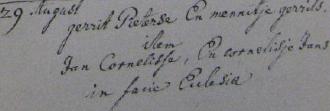 29 August
gerrit Pieterse En mennitje gerrits.
item
Jan Cornelisse, En cornelisje Jans
in facie Eclesia